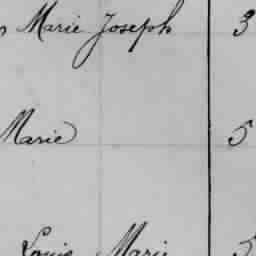 Marie Joseph 3
Marie 5
Louis Marie 5